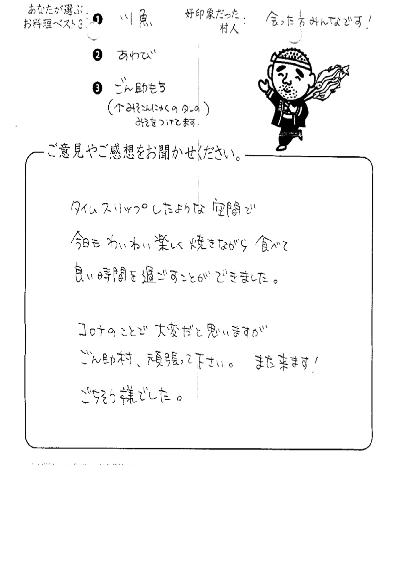 あなたが選ぶ
お料理ベスト3
❶ 川魚
❷ あわび
❸ ごん助もち
(↑みそこんにゃくの
みそをつけてます)
好印象だった
村人
会った方みんなです!
ご意見やご感想をお聞かせください。
タイムスリップしたような空間で
今日もわいわい楽しく焼きながら食べて
良い時間を過ごすことができました。
コロナのことで大変だと思いますが
ごん助村、頑張って下さい。 また来ます!
ごちそう様でした。